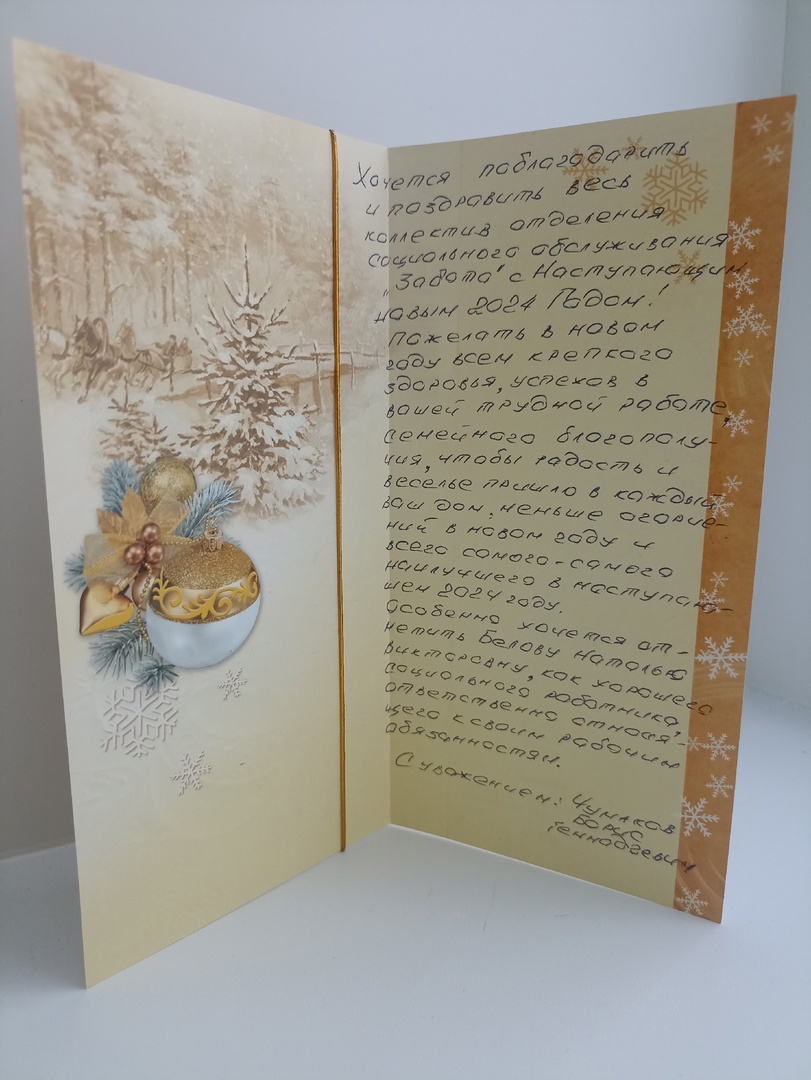 Хочется поблагодарить
и поздравить весь
коллектив отделения
социального обслуживания
„Забота" с Наступающим
новым 2024 Годом!
Пожелать в новом
году всем крепкого
здоровья, успехов в
вашей трудной работе,
семейного благополу-
чия, чтобы радость и
веселье пришло в каждый
ваш дом, меньше огорче-
ний в новом году и
всего самого-самого
наилучшего в наступаю-
щем 2024 году.
Особенно хочется от-
метить Белову Наталью
Викторовну, как хорошего
социального работника
ответственно относя-
щего к своим рабочим
обязанностям.
С уважением: Чумаков
Борис
Геннадьевич